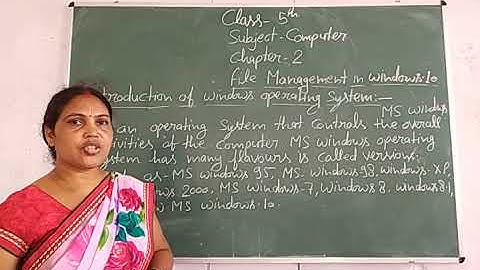 Class- 5th
Subject-Computer
Chapter-2
File Management in windows-10
troduction of windows operating System:-
MS windows
an operating System that controls the overall
tivities of the computer MS windows operating
stem has many flavours is called versions.
as- MS windows 95, MS- windows 98, windows-XP,
ows 2000, MS windows-7, Windows 8, windows 8.1,
MS windows-10.